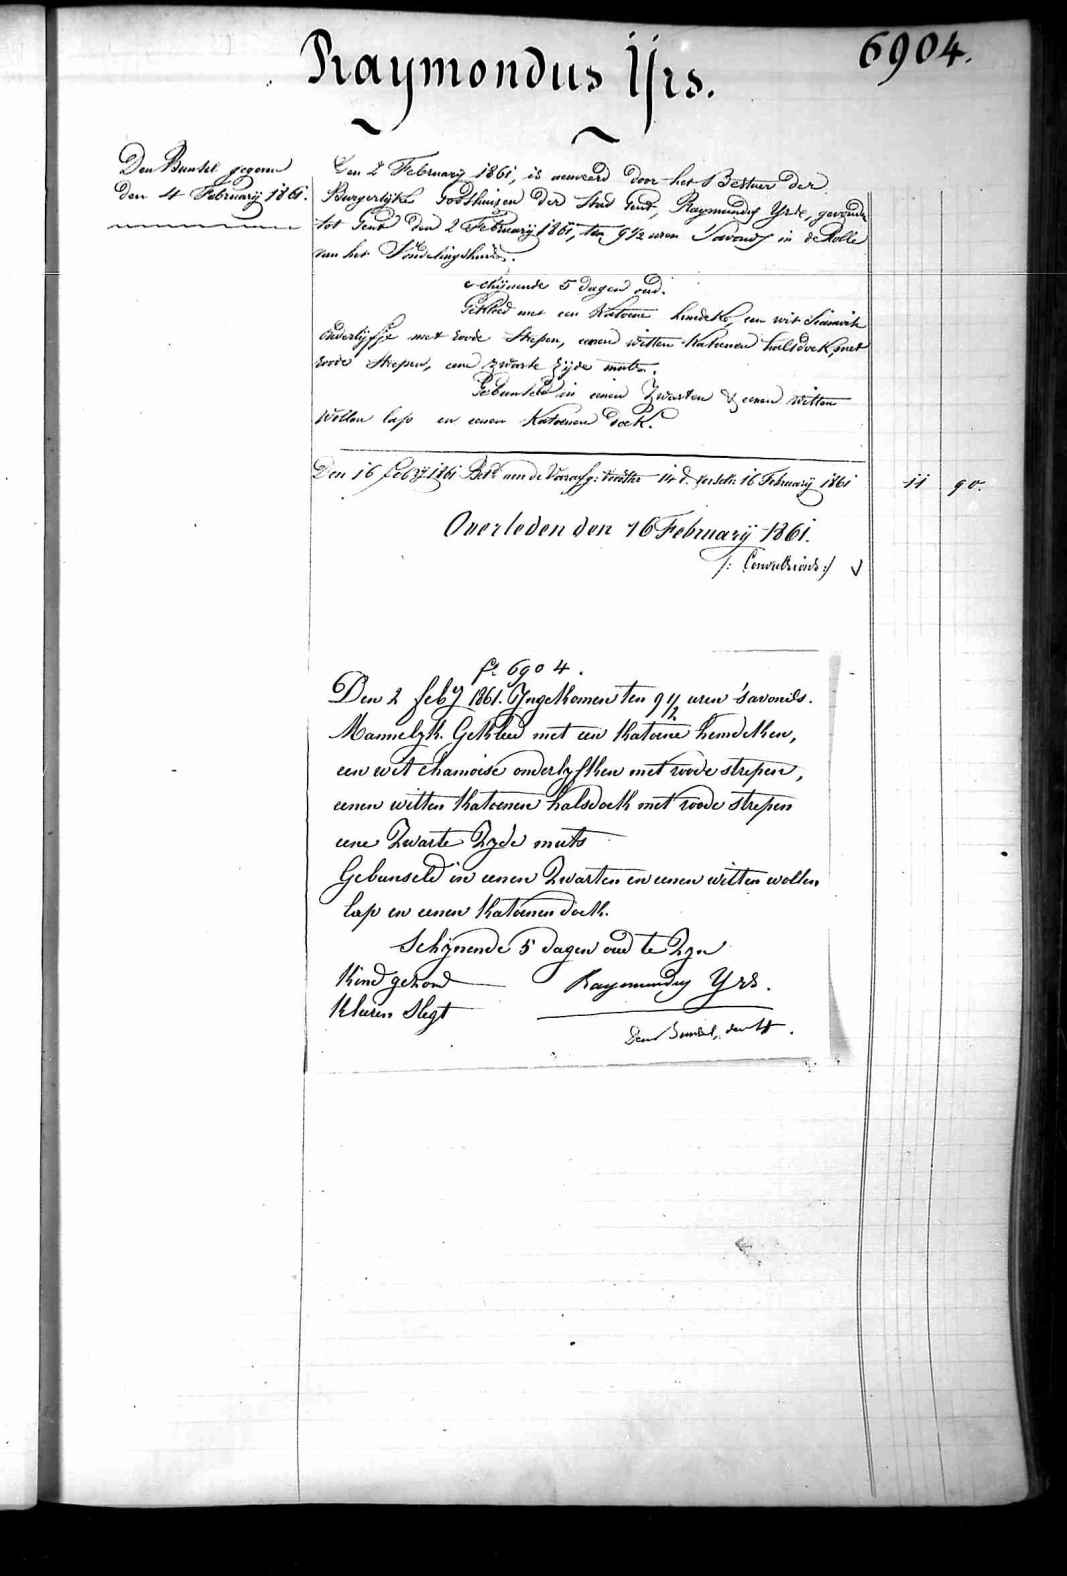 Raymondus Yrs.
6904.
Den Bunsel gegeven
den 4 Februarij 1861.
Den 2 February 1861, is aenveerd door het Bestuer der
Burgerlijke Godshuizen der Stad Gend, Raymundus Yrs, gevonden
tot Gent den 2 Februarij 1861, ten 9 1/2 uren 's avonds in de Rolle
van het Vondelingshuis.
schijnende 5 dagen oud.
Gekleed met een Katoene hemdeke, een wit
onderlijfje met roode strepen, eenen witten Katoenen halsdoek met
roode strepen, eene zwarte zijde muts.
Gebunseld in eenen Zwarten & eenen witten
wollen lap en eenen Katoenen doek.
Den 16 feby 1861 Bet aen de 14 d. 16 February 1861
11 90.
Overleden den 16 Februarij 1861.
/: Convulsions :/
f° 6904.
Den 2 feby 1861. Yngekomen ten 9 1/2 uren 's avonds.
Mannelyk. Gekleed met een katoene hemdeken,
een wit chamoise onderlyfken met roode strepen,
eenen witten katoenen halsdoek met roode strepen
eene Zwarte Zyde muts
Gebunseld in eenen Zwarten en eenen witten wollen
lap en eenen katoenen doek.
Schijnende 5 dagen oud te Zyn
Kind gezond
Raymundus Yrs.
Kleeren Slegt
Den Bunsel, den